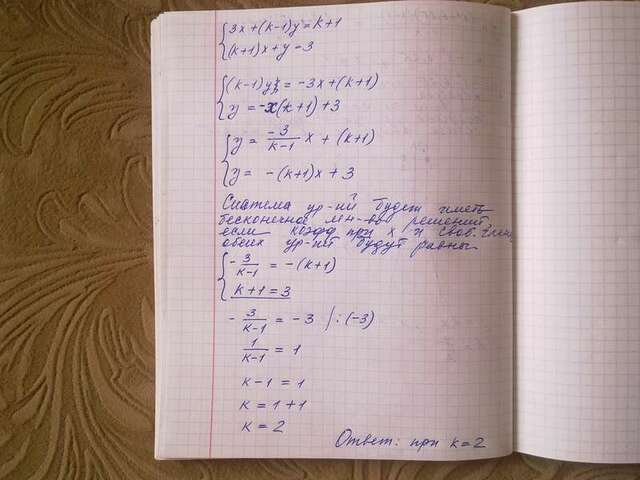 3x+(k-1)y=k+1
(k+1)x+y=3
(k-1)y = -3x+(k+1)
y = -x(k+1)+3
y = -3/(k-1) x + (k+1)
y = -(k+1)x + 3
Система ур-ий будет иметь
бесконечное мн-во решений,
если коэфф при x и своб. член
обеих ур-ий будут равны.
-3/(k-1) = -(k+1)
k+1=3
-3/(k-1) = -3 /:(-3)
1/(k-1) = 1
k-1 = 1
k = 1+1
k = 2
Ответ: при k=2